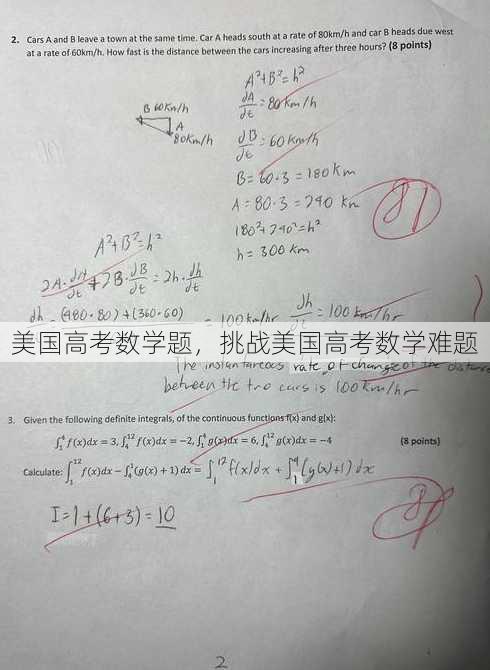 2. Cars A and B leave a town at the same time. Car A heads south at a rate of 80km/h and car B heads due west
at a rate of 60km/h. How fast is the distance between the cars increasing after three hours? (8 points)
A²+B²=h²
dA/dt = 80 km/h
B 60km/h
A
80km/h
dB/dt = 60 km/h
B = 60·3 = 180 km
A = 80·3 = 240 km
8
180²+240²=h²
h = 300 km
A²+B²=h²
2A·dA/dt + 2B·dB/dt = 2h·dh/dt
dh = (480·80)+(360·60) = 100 km/hr dh/dt = 100 km/hr
美国高考数学题，挑战美国高考数学难题
The instantaneous rate of change of the distance
between the two cars is 100 km/hr
3. Given the following definite integrals, of the continuous functions f(x) and g(x):
∫₁⁴ f(x)dx = 3, ∫₄¹² f(x)dx = −2, ∫₁⁴ g(x)dx = 6, ∫₄¹² g(x)dx = −4 (8 points)
Calculate: ∫₁¹² f(x)dx − ∫₄¹ (g(x) + 1) dx = ∫₁¹² f(x)dx + ∫₁⁴ (g(x)+1) dx
I = 1 + (6+3) = 10
8
2